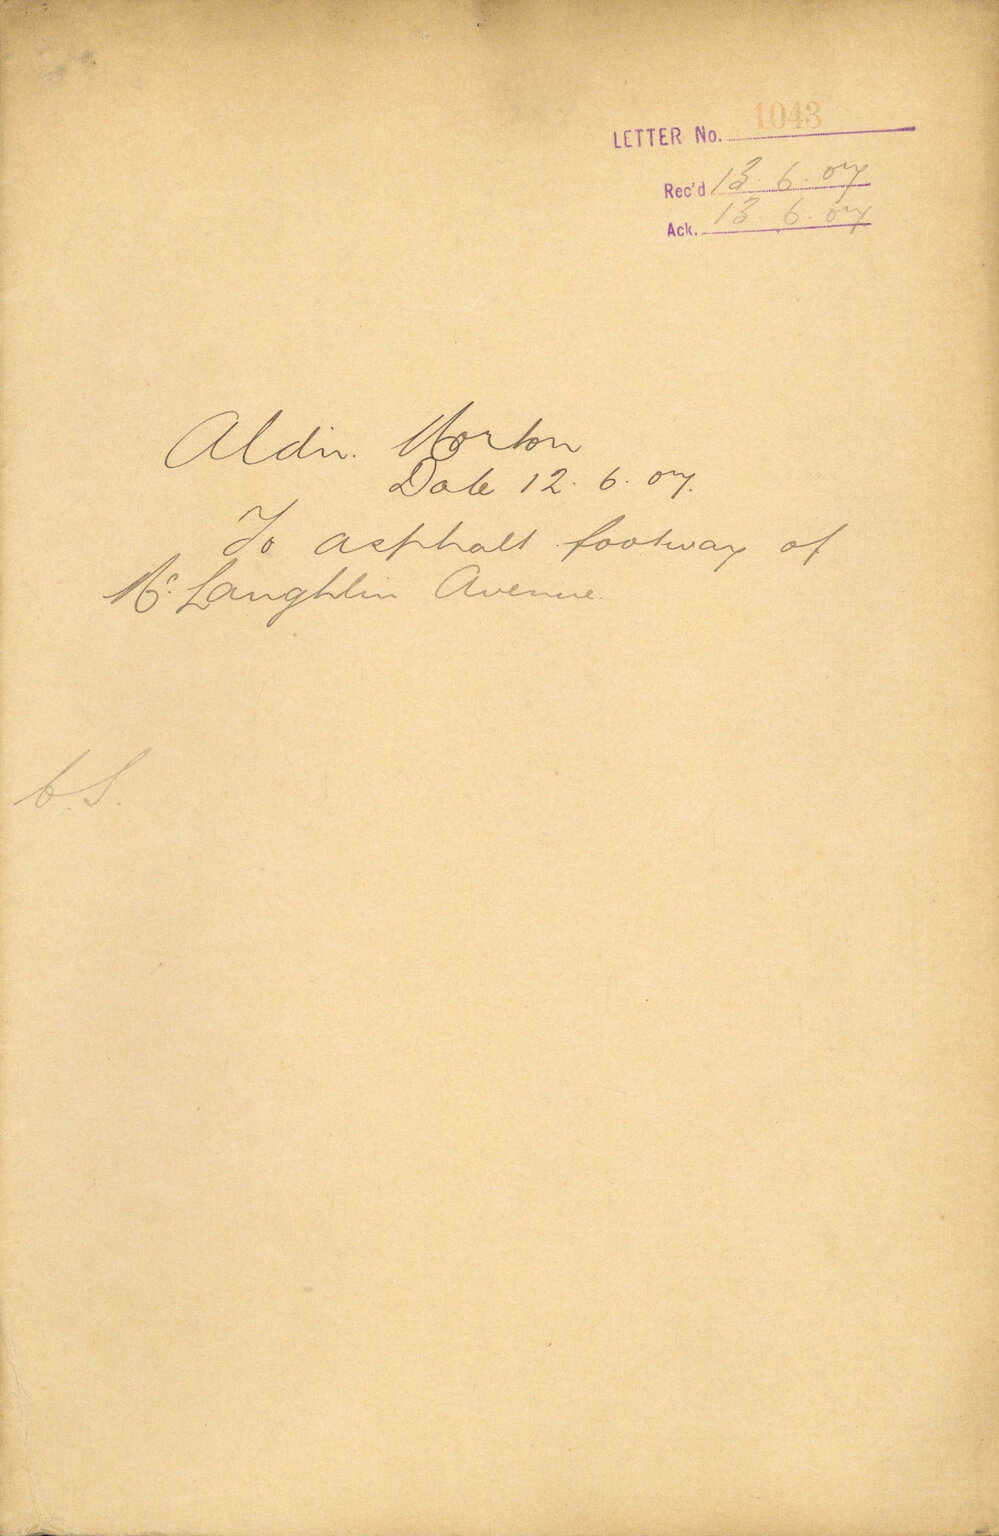 LETTER No. 1043
Rec'd 13. 6. 07
Ack. 13. 6. 07
Aldn. Morton
Date 12. 6. 07.
To asphalt footway of
McLaughlin Avenue.
C.S.